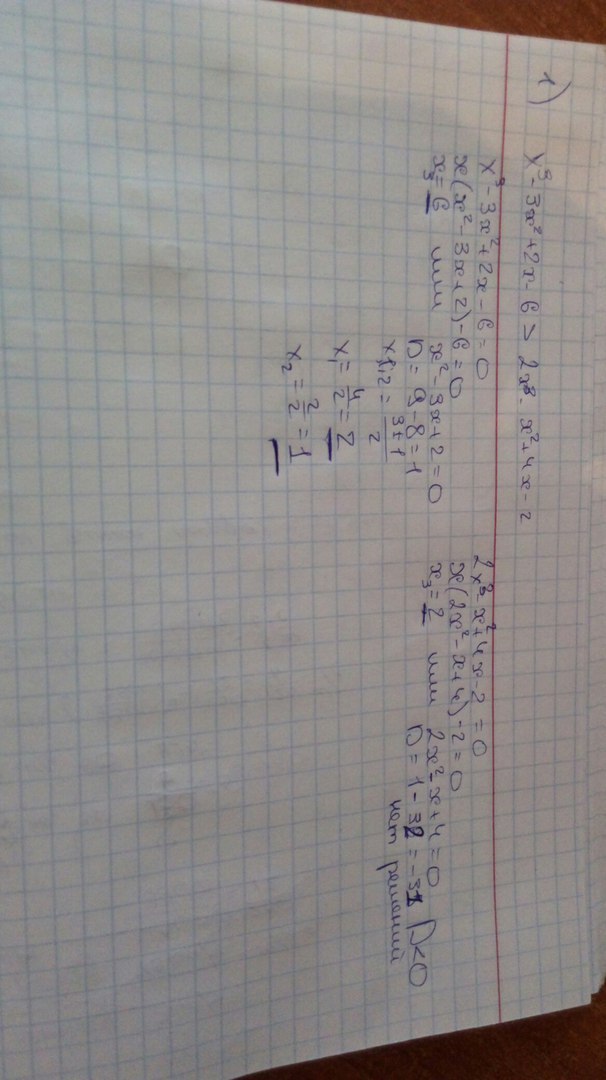 1)
x³ - 3x² + 2x - 6 > 2x³ - x² + 4x - 2
x³ - 3x² + 2x - 6 = 0
x(x² - 3x + 2) - 6 = 0
x₃ = 6 или x² - 3x + 2 = 0
D = 9 - 8 = 1
x₁,₂ = (3 ± 1)/2
x₁ = 4/2 = 2
x₂ = 2/2 = 1
2x³ - x² + 4x - 2 = 0
x(2x² - x + 4) - 2 = 0
x₃ = 2 или 2x² - x + 4 = 0
D = 1 - 32 = -31 D < 0
нет решений